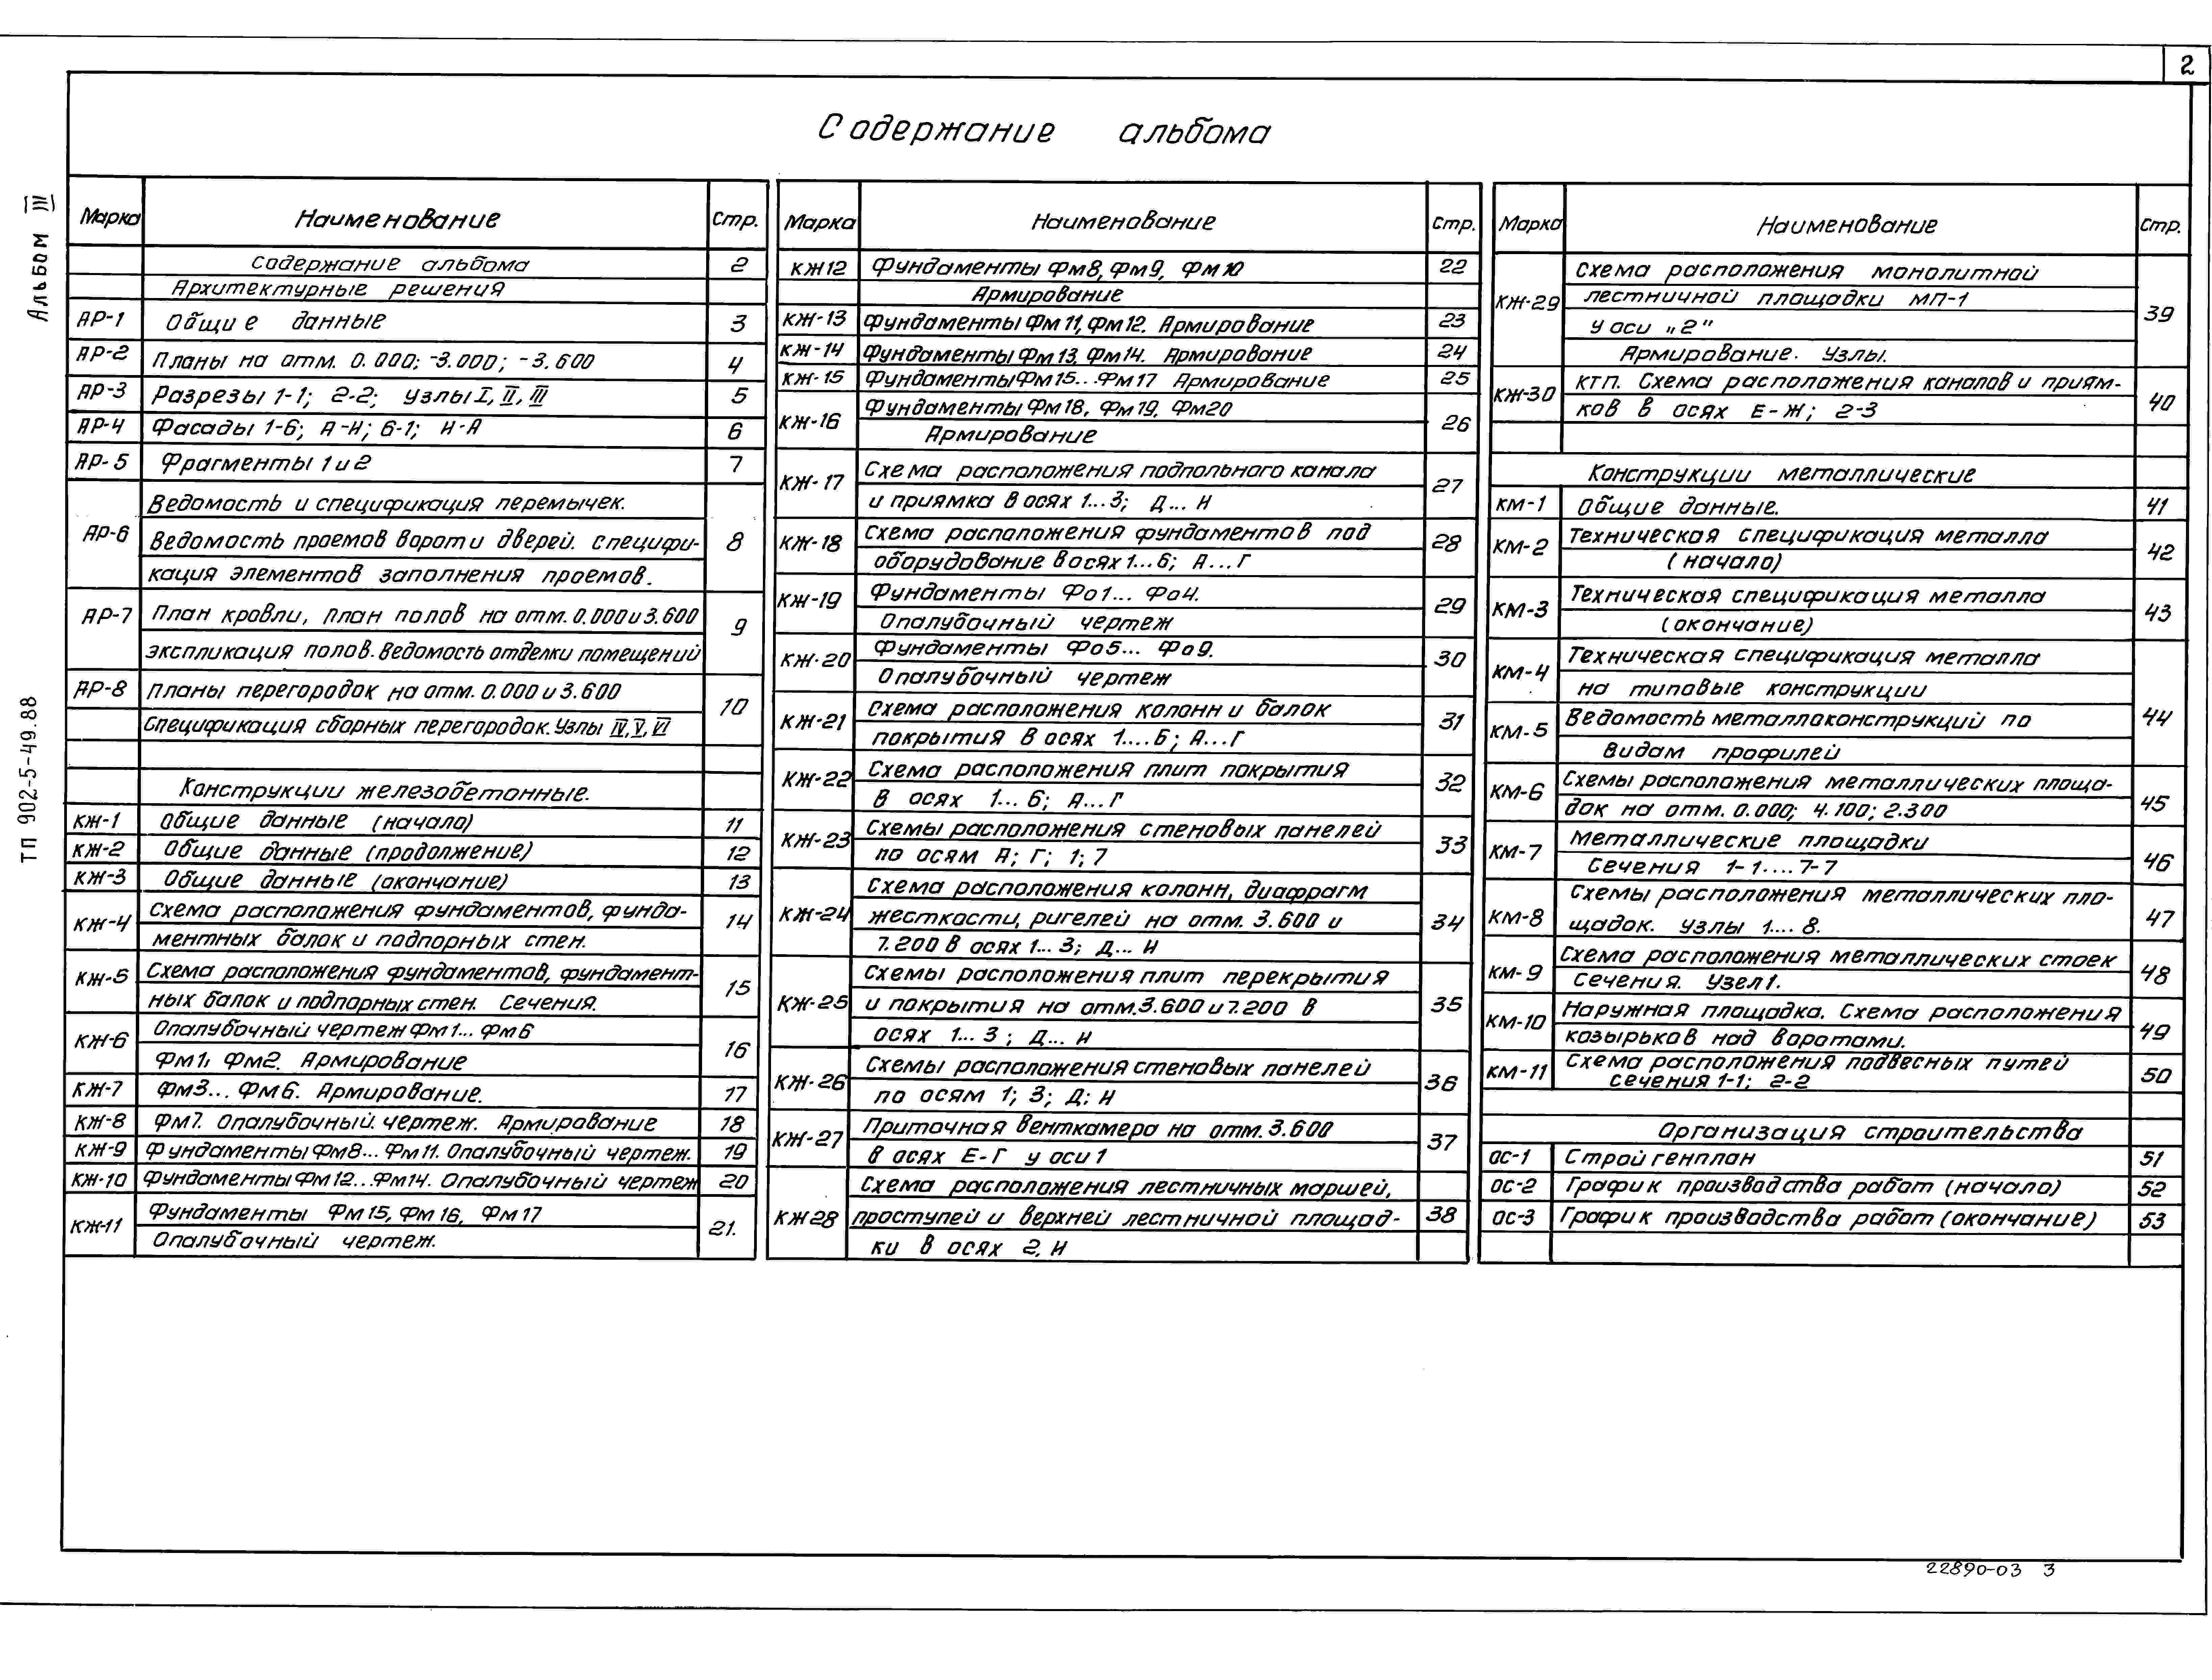 2
Содержание альбома
Альбом III
ТП 902-5-49.88
Марка Наименование Стр.
Содержание альбома 2
Архитектурные решения
АР-1 Общие данные 3
АР-2 Планы на отм. 0.000; -3.000; -3.600 4
АР-3 Разрезы 1-1; 2-2; узлы I, II, III 5
АР-4 Фасады 1-6; А-И; 6-1; И-А 6
АР-5 Фрагменты 1 и 2 7
Ведомость и спецификация перемычек.
АР-6 Ведомость проемов ворот и дверей. Специфи- 8
кация элементов заполнения проемов.
АР-7 План кровли, план полов на отм. 0.000 и 3.600 9
экспликация полов. Ведомость отделки помещений
АР-8 Планы перегородок на отм. 0.000 и 3.600 10
Спецификация сборных перегородок. Узлы IV, V, VI
Конструкции железобетонные.
КЖ-1 Общие данные (начало) 11
КЖ-2 Общие данные (продолжение) 12
КЖ-3 Общие данные (окончание) 13
КЖ-4 Схема расположения фундаментов, фунда- 14
ментных балок и подпорных стен.
КЖ-5 Схема расположения фундаментов, фундамент- 15
ных балок и подпорных стен. Сечения.
КЖ-6 Опалубочный чертеж Фм1... Фм6 16
Фм1, Фм2. Армирование
КЖ-7 Фм3... Фм6. Армирование. 17
КЖ-8 Фм7. Опалубочный чертеж. Армирование 18
КЖ-9 Фундаменты Фм8... Фм11. Опалубочный чертеж. 19
КЖ-10 Фундаменты Фм12...Фм14. Опалубочный чертеж 20
КЖ-11 Фундаменты Фм15, Фм16, Фм17 21.
Опалубочный чертеж.
Марка Наименование Стр.
КЖ12 Фундаменты Фм8, Фм9, Фм10 22
Армирование
КЖ-13 Фундаменты Фм11, Фм12. Армирование 23
КЖ-14 Фундаменты Фм13, Фм14. Армирование 24
КЖ-15 Фундаменты Фм15...Фм17 Армирование 25
КЖ-16 Фундаменты Фм18, Фм19, Фм20 26
Армирование
КЖ-17 Схема расположения подпольного канала 27
и приямка в осях 1...3; Д... И
КЖ-18 Схема расположения фундаментов под 28
оборудование в осях 1...6; А...Г
КЖ-19 Фундаменты Фо1... Фо4. 29
Опалубочный чертеж
КЖ-20 Фундаменты Фо5... Фо9. 30
Опалубочный чертеж
КЖ-21 Схема расположения колонн и балок 31
покрытия в осях 1....6; А...Г
КЖ-22 Схема расположения плит покрытия 32
в осях 1... 6; А...Г
КЖ-23 Схемы расположения стеновых панелей 33
по осям А; Г; 1; 7
Схема расположения колонн, диафрагм
КЖ-24 жесткости, ригелей на отм. 3.600 и 34
7.200 в осях 1... 3; Д... И
Схемы расположения плит перекрытия
КЖ-25 и покрытия на отм. 3.600 и 7.200 в 35
осях 1... 3; Д... И
КЖ-26 Схемы расположения стеновых панелей 36
по осям 1; 3; Д; И
КЖ-27 Приточная венткамера на отм. 3.600 37
в осях Е-Г у оси 1
Схема расположения лестничных маршей,
КЖ28 проступей и верхней лестничной площад- 38
ки в осях 2, И
Марка Наименование Стр.
Схема расположения монолитной
КЖ-29 лестничной площадки МП-1 39
у оси „2"
Армирование. Узлы.
КЖ-30 КТП. Схема расположения каналов и приям- 40
ков в осях Е-Ж; 2-3
Конструкции металлические
КМ-1 Общие данные. 41
КМ-2 Техническая спецификация металла 42
(начало)
КМ-3 Техническая спецификация металла 43
(окончание)
КМ-4 Техническая спецификация металла
на типовые конструкции
44
КМ-5 Ведомость металлоконструкций по
видам профилей
КМ-6 Схемы расположения металлических площа- 45
док на отм. 0.000; 4.100; 2.300
КМ-7 Металлические площадки 46
Сечения 1-1.... 7-7
КМ-8 Схемы расположения металлических пло- 47
щадок. Узлы 1.... 8.
КМ-9 Схема расположения металлических стоек 48
Сечения. Узел 1.
КМ-10 Наружная площадка. Схема расположения 49
козырьков над воротами.
КМ-11 Схема расположения подвесных путей 50
сечения 1-1; 2-2
Организация строительства
ОС-1 Стройгенплан 51
ОС-2 График производства работ (начало) 52
ОС-3 График производства работ (окончание) 53
22890-03 3